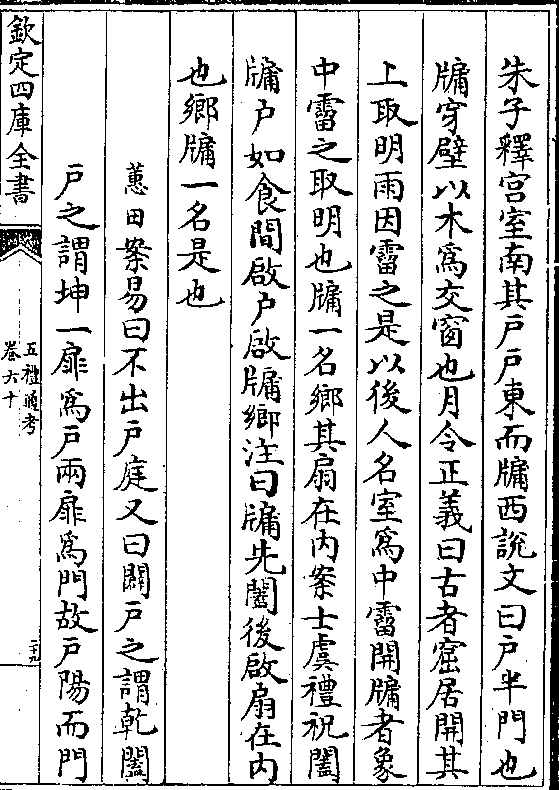 朱子釋宫室南其戶戶東而牖西說文曰戶半門也
牖穿壁以木爲交窗也月令正義曰古者窟居開其
上取明雨因霤之是以後人名室爲中霤開牖者象
中霤之取明也牖一名鄉其扇在内案士虞禮祝闔
牖户如食間啟户啟牖鄉注曰牖先闔後啟扇在内
也鄉牖一名是也
蕙田案易曰不出戶庭又曰闢戶之謂乾闔
戶之謂坤一扉爲戶兩扉爲門故戶陽而門
欽定四庫全書
五禮通考
卷六十
二十九